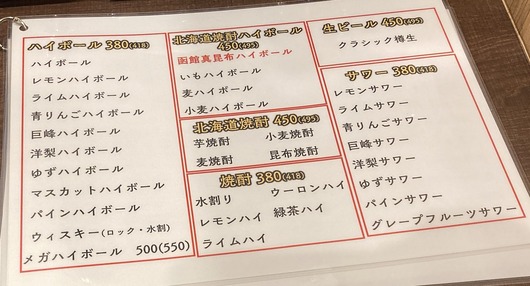 ハイボール 380(418)
ハイボール
レモンハイボール
ライムハイボール
青りんごハイボール
巨峰ハイボール
洋梨ハイボール
ゆずハイボール
マスカットハイボール
パインハイボール
ウィスキー(ロック・水割)
メガハイボール 500(550)
北海道焼酎ハイボール
450(495)
函館真昆布ハイボール
いもハイボール
麦ハイボール
小麦ハイボール
北海道焼酎 450(495)
芋焼酎 小麦焼酎
麦焼酎 昆布焼酎
焼酎 380(418)
水割り ウーロンハイ
レモンハイ 緑茶ハイ
ライムハイ
生ビール 450(495)
クラシック樽生
サワー 380(418)
レモンサワー
ライムサワー
青りんごサワー
巨峰サワー
洋梨サワー
ゆずサワー
パインサワー
グレープフルーツサワー